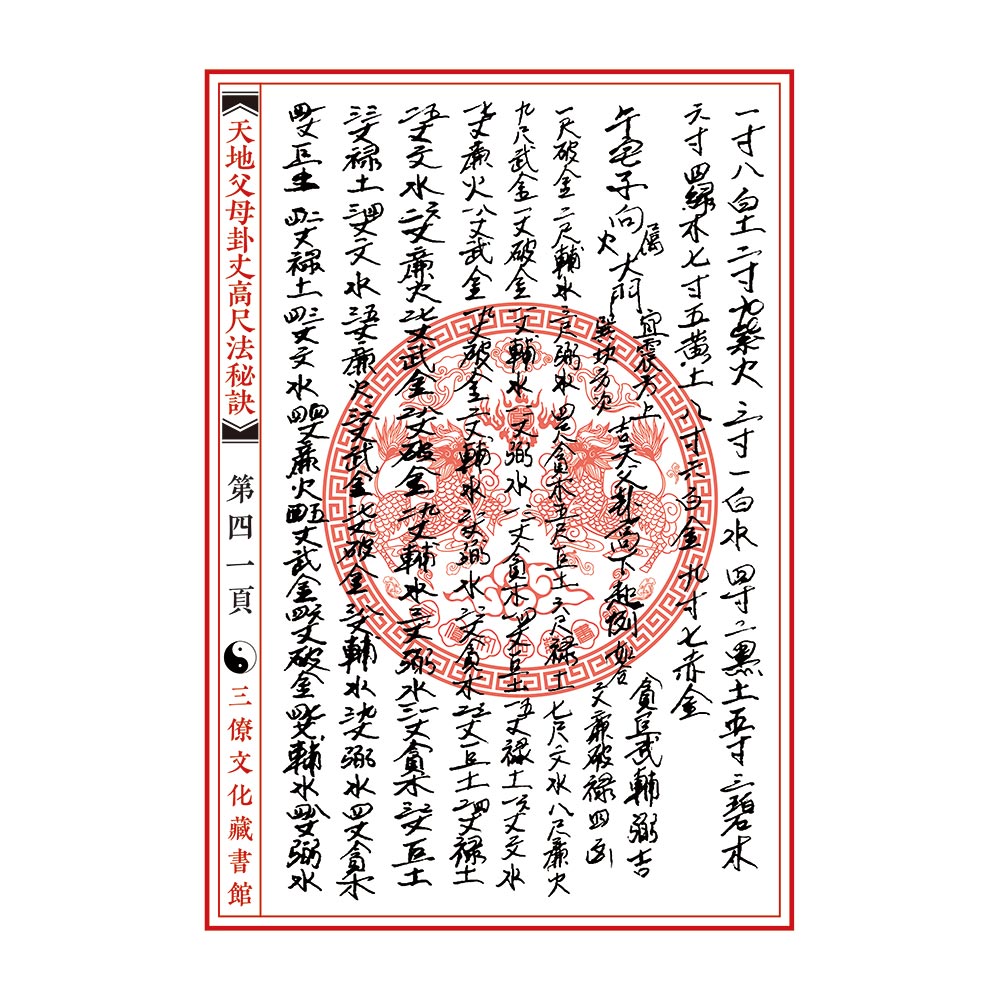 一寸八白土二寸九紫火三寸一白水四寸二黑土五寸三碧木
六寸四綠木七寸五黄土八寸六白金九寸七赤金
午宅子向屬火大門宜震方上吉天父卦高下起例
巽坎方次
貪巨武輔弼吉
文廉破禄四凶
一尺破金二尺輔水三尺弼水四尺貪木五尺巨土六尺禄土七尺文水八尺廉火
九尺武金一丈破金一丈輔水一丈弼水一三丈貪木一四丈巨土一五丈禄土一六丈文水
一七丈廉火一八丈武金一九丈破金二丈輔水二一丈弼水二二丈貪木二三丈巨土二四丈禄土
二五丈文水二六丈廉火二七丈武金二八丈破金二九丈輔水三丈弼水三一丈貪木三二丈巨土
三三丈禄土三四丈文水三五丈廉火三六丈武金三七丈破金三八丈輔水三九丈弼水四丈貪木
四一丈巨土四二丈禄土四三丈文水四四丈廉火四五丈武金四六丈破金四七丈輔水四八丈弼水
《天地父母卦丈高尺法秘訣》
第四一頁
三僚文化藏書館